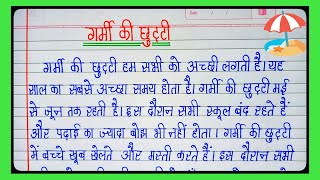 गर्मी की छुट्टी
गर्मी की छुट्टी हम सभी को अच्छी लगती है। यह
साल का सबसे अच्छा समय होता है। गर्मी की छुट्टी मई
से जून तक रहती है। इस दौरान सभी स्कूल बंद रहते हैं
और पढ़ाई का ज्यादा बोझ भी नहीं होता। गर्मी की छुट्टी
में बच्चे खूब खेलते और मस्ती करते हैं। इस दौरान सभी